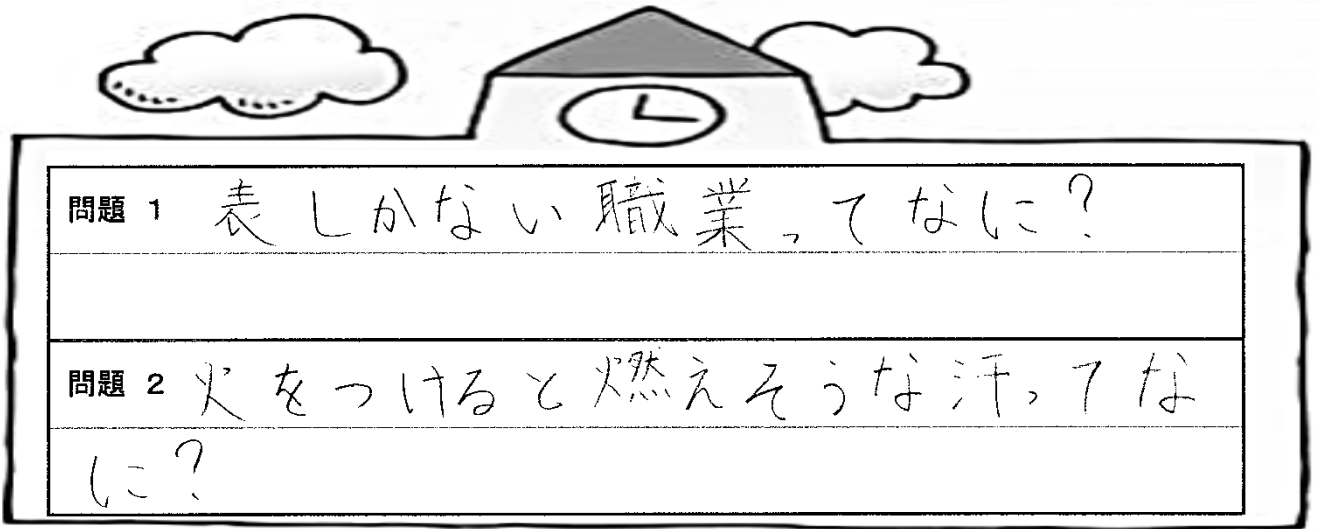 問題 1 表しかない職業ってなに?
問題 2 火をつけると燃えそうな汗ってな
に?